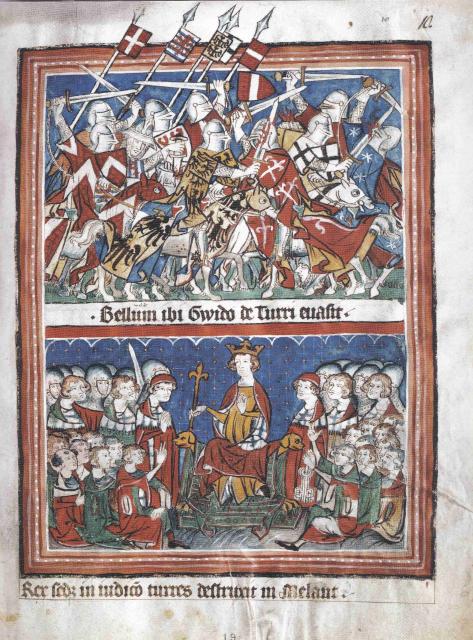 · Bellum ibi Gwido de Turri euasit ·
Rex sedꝫ in iudicō turres destruxit in Melant ·
19